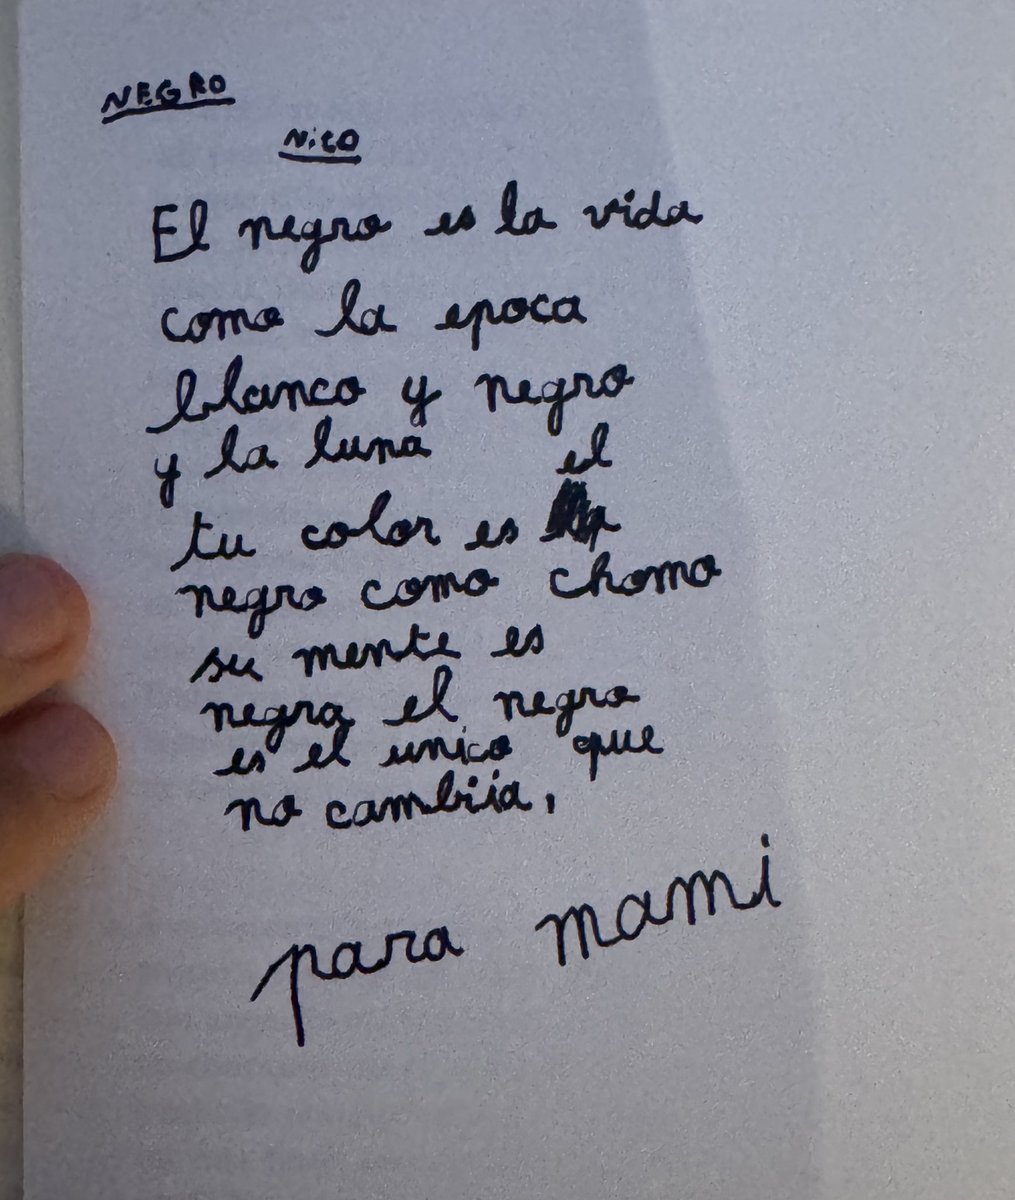 NEGRO
Nico
El negro es la vida
como la epoca
blanco y negro
y la luna
tu color es el
negro como chomo
su mente es
negra el negro
es el unico que
no cambiia,
para mami